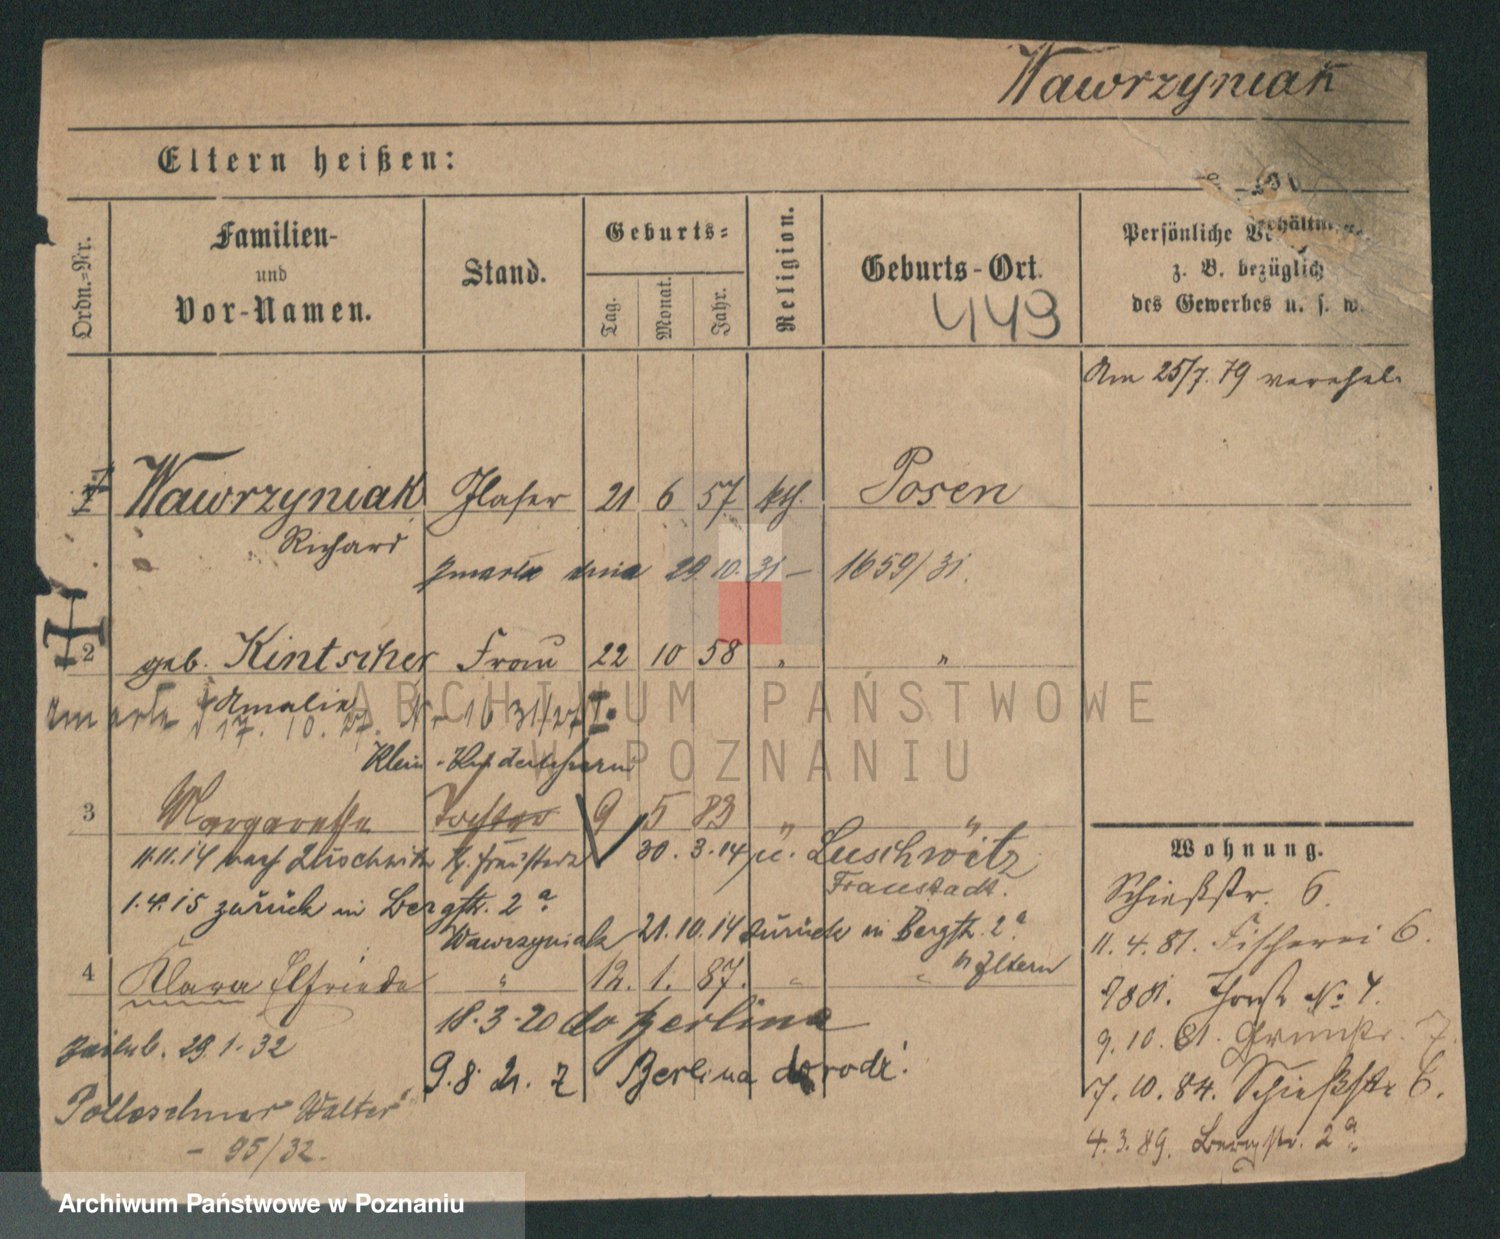 Wawrzyniak
Eltern heißen:
Ordn.-Nr.
Familien-
und
Vor-Namen.
Stand.
Geburts-
Tag.
Monat.
Jahr.
Religion.
Geburts-Ort.
449
Persönliche
z. B. bezüglich
des Gewerbes u. s. w.
Am 25/7. 79 verehel.
1 Wawrzyniak Glaser 21 6 57 kth. Posen
Richard
zmarła dnia 29.10.31 – 1659/31.
2 geb. Kintscher Frau 22 10 58 " "
Amalie
zmarła 17. 10. 27. Nr. 1631/27 I.
Klein
3 Margarethe Tochter 9 5 83 " "
11.11.14 nach Luschwitz Kr. Fraustadt 30.3.14 n. Luschwitz
Fraustadt.
1.4.15 zurück in Bergstr. 2a
Wawrzyniak 21.10.14 zurück in Bergstr. 2a
4 Klara Elfriede " 12. 1. 87. " " Eltern
18.3.20 do Berlina
zaślub. 29.1.32
9.8.21. z Berlina do rodz.
"Walter"
– 95/32.
Wohnung.
Schießstr. 6.
11.4.81. Fischerei 6.
No 4.
9.10.81. 7
7.10.84. Schießstr. 6.
4.3.89. Bergstr. 2a.
ARCHIWUM PAŃSTWOWE
W POZNANIU
Archiwum Państwowe w Poznaniu